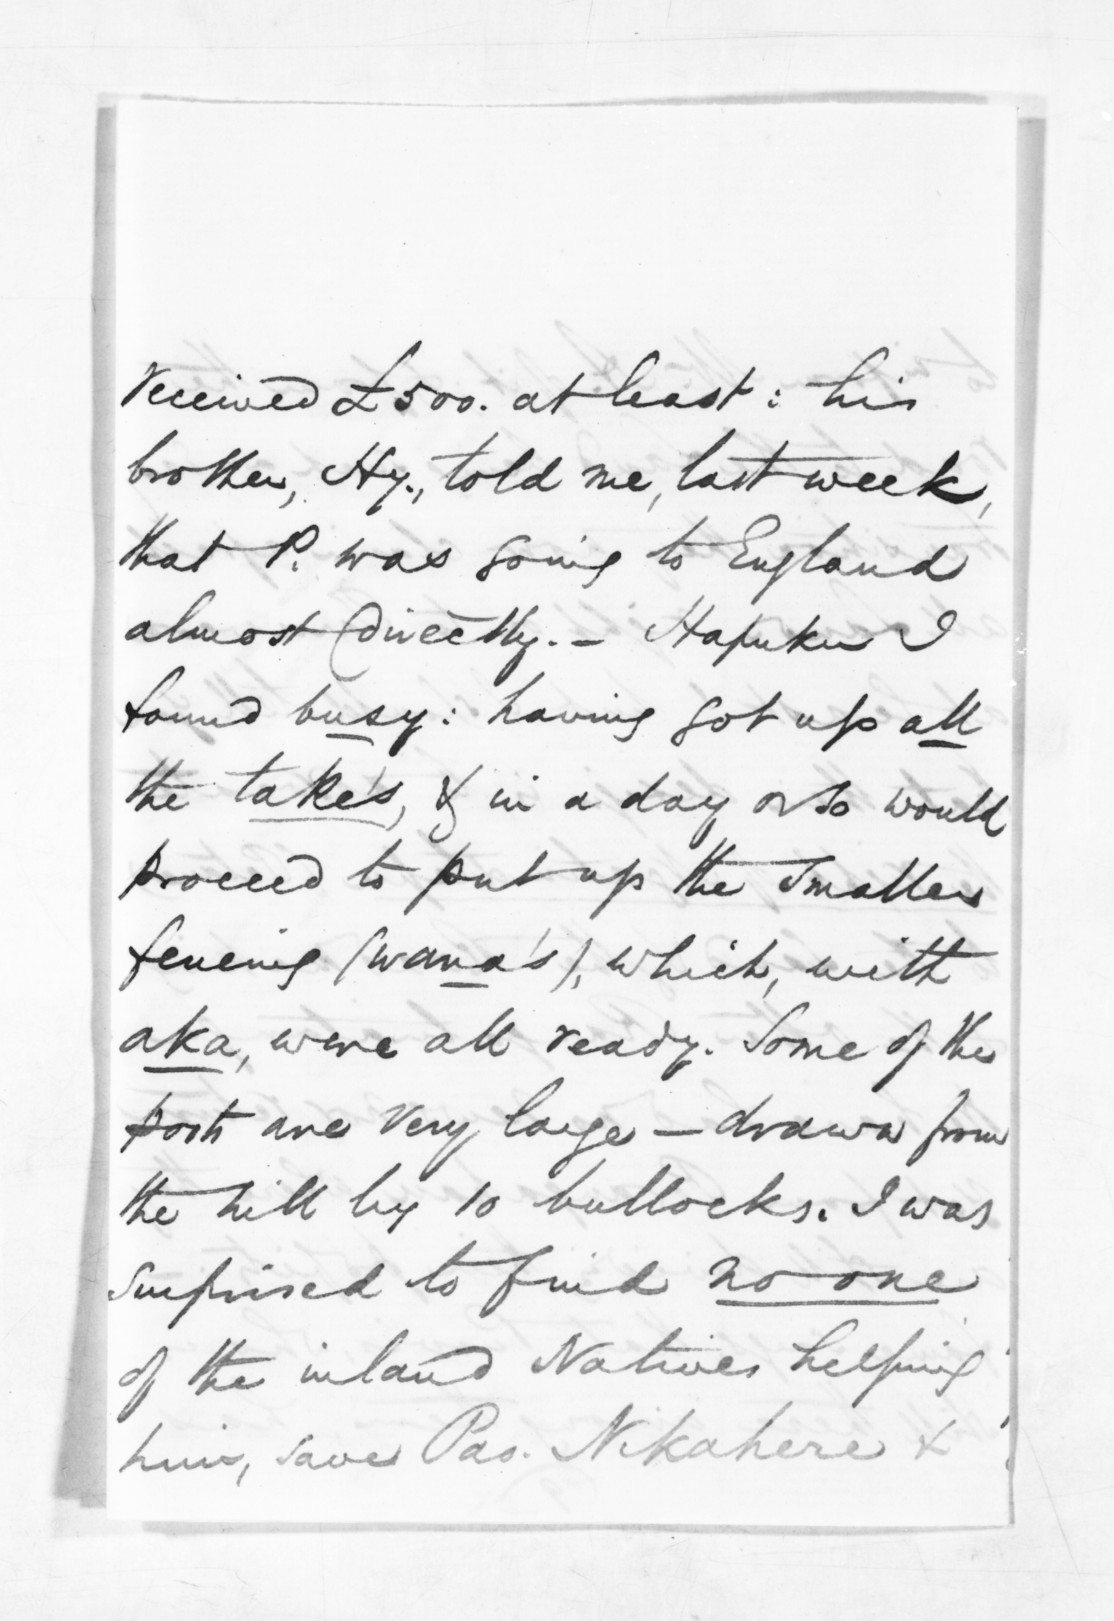 received £500. at least: his
brother, Hy., told me, last week,
that P. was going to England
almost directly. – Hapuku I
found busy: having got up all
the take's, & in a day or so would
proceed to put up the smaller
fencing (wana's), which, with
aka, were all ready. Some of the
posts are very large – drawn from
the hill by 10 bullocks. I was
surprised to find no one
of the inland Natives helping
him, save Pao. Nikahere &